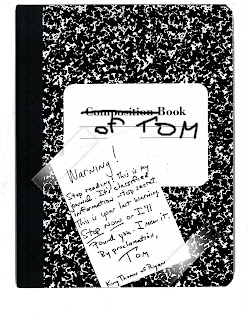 Composition Book
of TOM
Warning!
Stop reading. This is my
journal. It's classified
information. +top secret.
This is your last warning.
Stop Now or I'll
Pound you. I mean it.
By proclamation,
Tom
King Thomas of Ryan